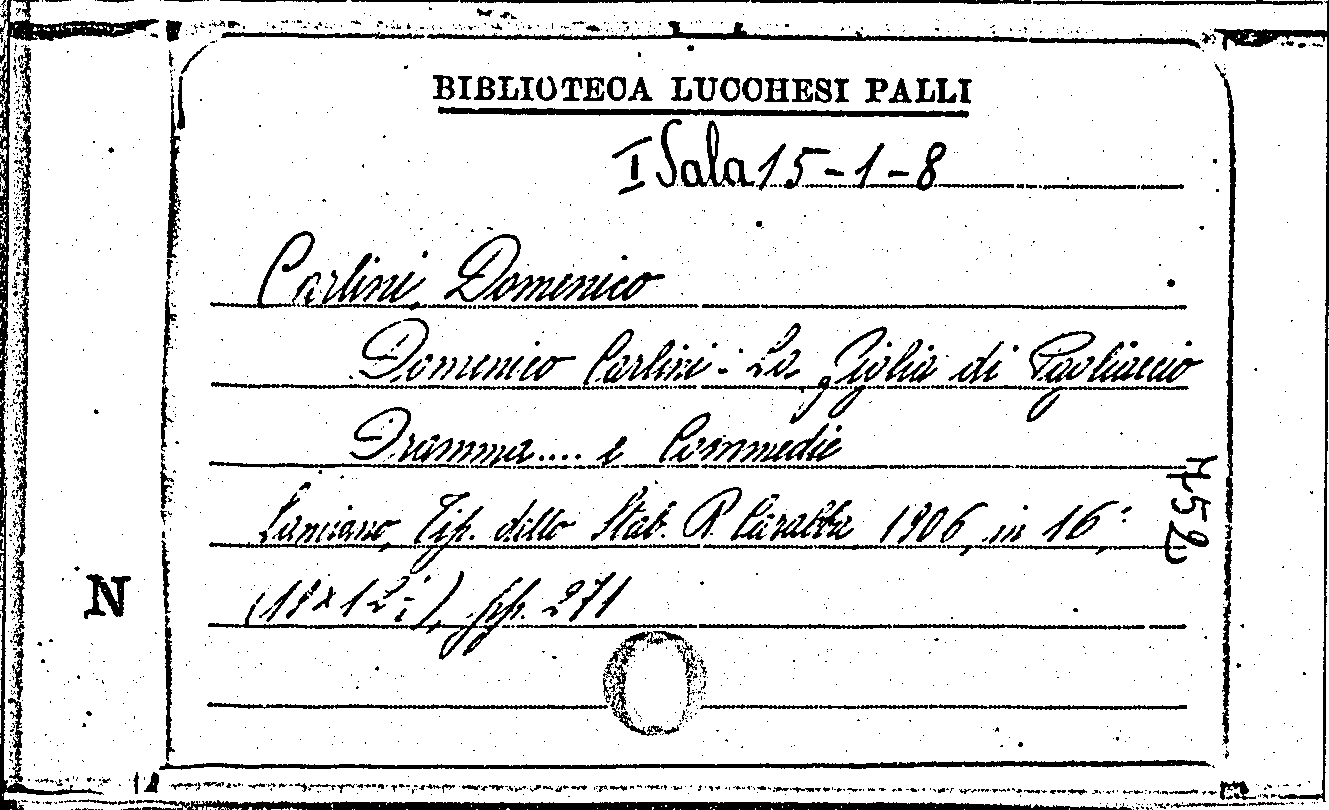 BIBLIOTECA LUCCHESI PALLI
I Sala 15-1-8
Carlini, Domenico
Domenico Carlini - La Figlia di Pagliaccio
Dramma.... e Commedie
Lanciano, Tip. dello Stab. R. Carabba 1906, in 16,
(18×12), pp. 271
N